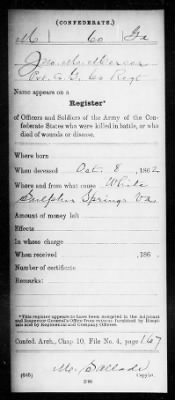 (CONFEDERATE.)
M | Co | Ga
Jno. M. Mercer
Pvt. Co. G, Co Regt
Name appears on a
Register*
of Officers and Soldiers of the Army of the Confederate States who were killed in battle, or who died of wounds or disease.
Where born
When deceased Oct. 8, 1862
Where and from what cause White
Sulphur Springs Va
Amount of money left
Effects
In whose charge
When received , 186 .
Number of certificate
Remarks:
*This register appears to have been compiled in the Adjutant and Inspector General's Office from returns furnished by Hospitals and by Regimental and Company Officers.
Confed. Arch., Chap. 10, File No. 4, page 167
M. Sallade
(635) Copyist.